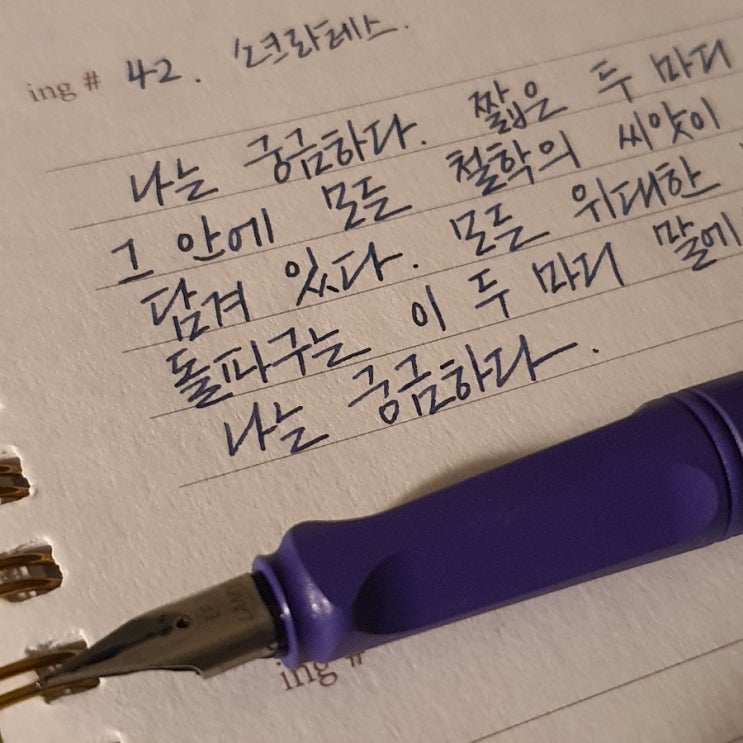 ing # 42. 소크라테스.
나는 궁금하다. 짧은 두 마디
그 안에 모든 철학의 씨앗이
담겨 있다. 모든 위대한
돌파구는 이 두 마디 말에
나는 궁금하다.
EF
LAMY
ing #